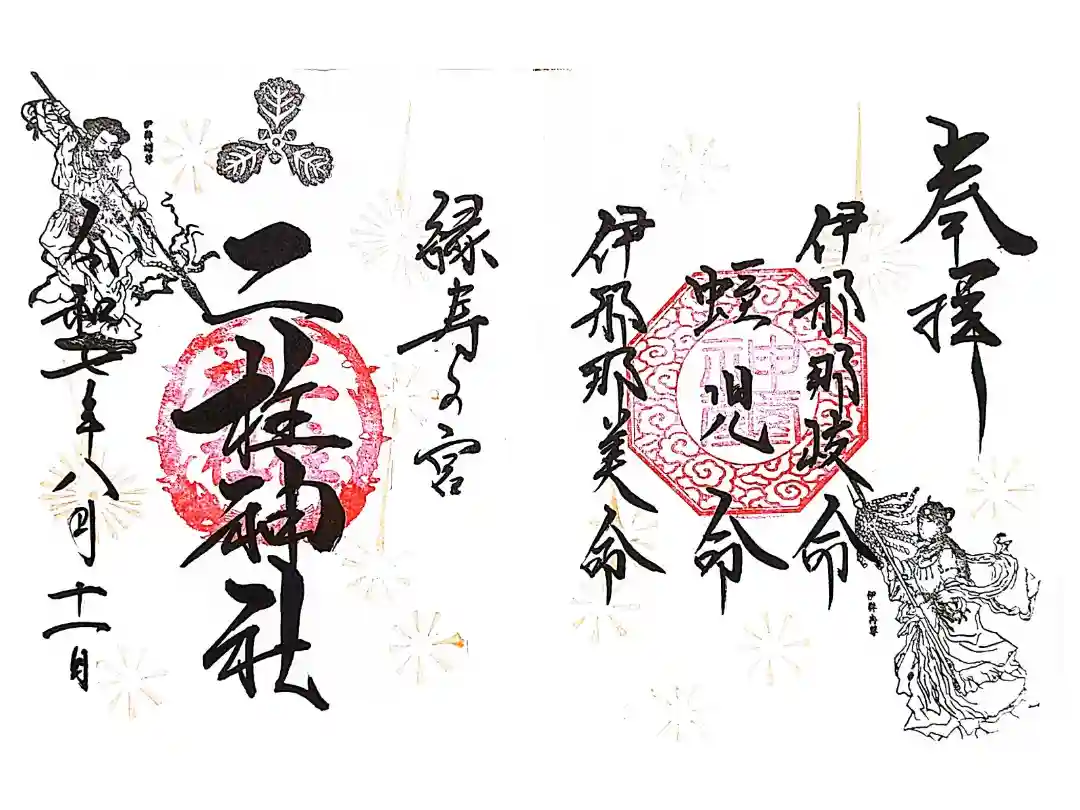 奉拝
伊邪那岐命
蛭児命
伊邪那美命
伊弉冉尊
縁寿の宮
二柱神社
伊弉諾尊
令和七年八月十一日